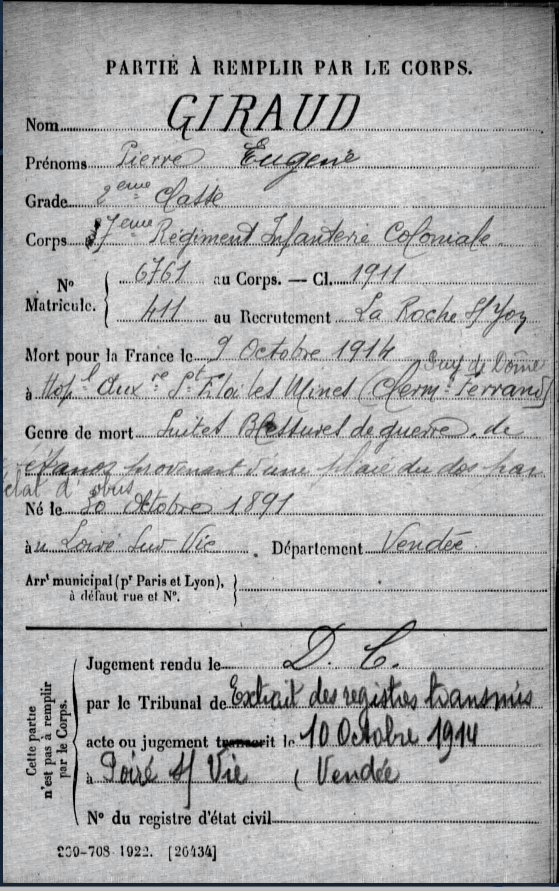 PARTIE À REMPLIR PAR LE CORPS.
Nom GIRAUD
Prénoms Pierre Eugene
Grade 2eme Classe
Corps 7eme Régiment Infanterie Coloniale
N° Matricule. { 6761 au Corps. — Cl. 1911
411 au Recrutement La Roche S/ Yon
Mort pour la France le 9 Octobre 1914
Puy de Dôme
à Hop.l Aux.re St Eloi les Mines (Clerm.t Ferrand)
Genre de mort Suites Blessures de guerre. de
tétanos provenant d'une plaie du dos par
éclat d'obus
Né le 30 Octobre 1891
à Poiré Sur Vie . Département Vendée
Arrt municipal (pr Paris et Lyon),
à défaut rue et N°. }
Cette partie n'est pas à remplir par le Corps.
Jugement rendu le D. C.
par le Tribunal de Extrait des registres transmis
acte ou jugement transcrit le 10 Octobre 1914
à Poiré s/ Vie ( Vendée
N° du registre d'état civil
-708-1922. [26434]